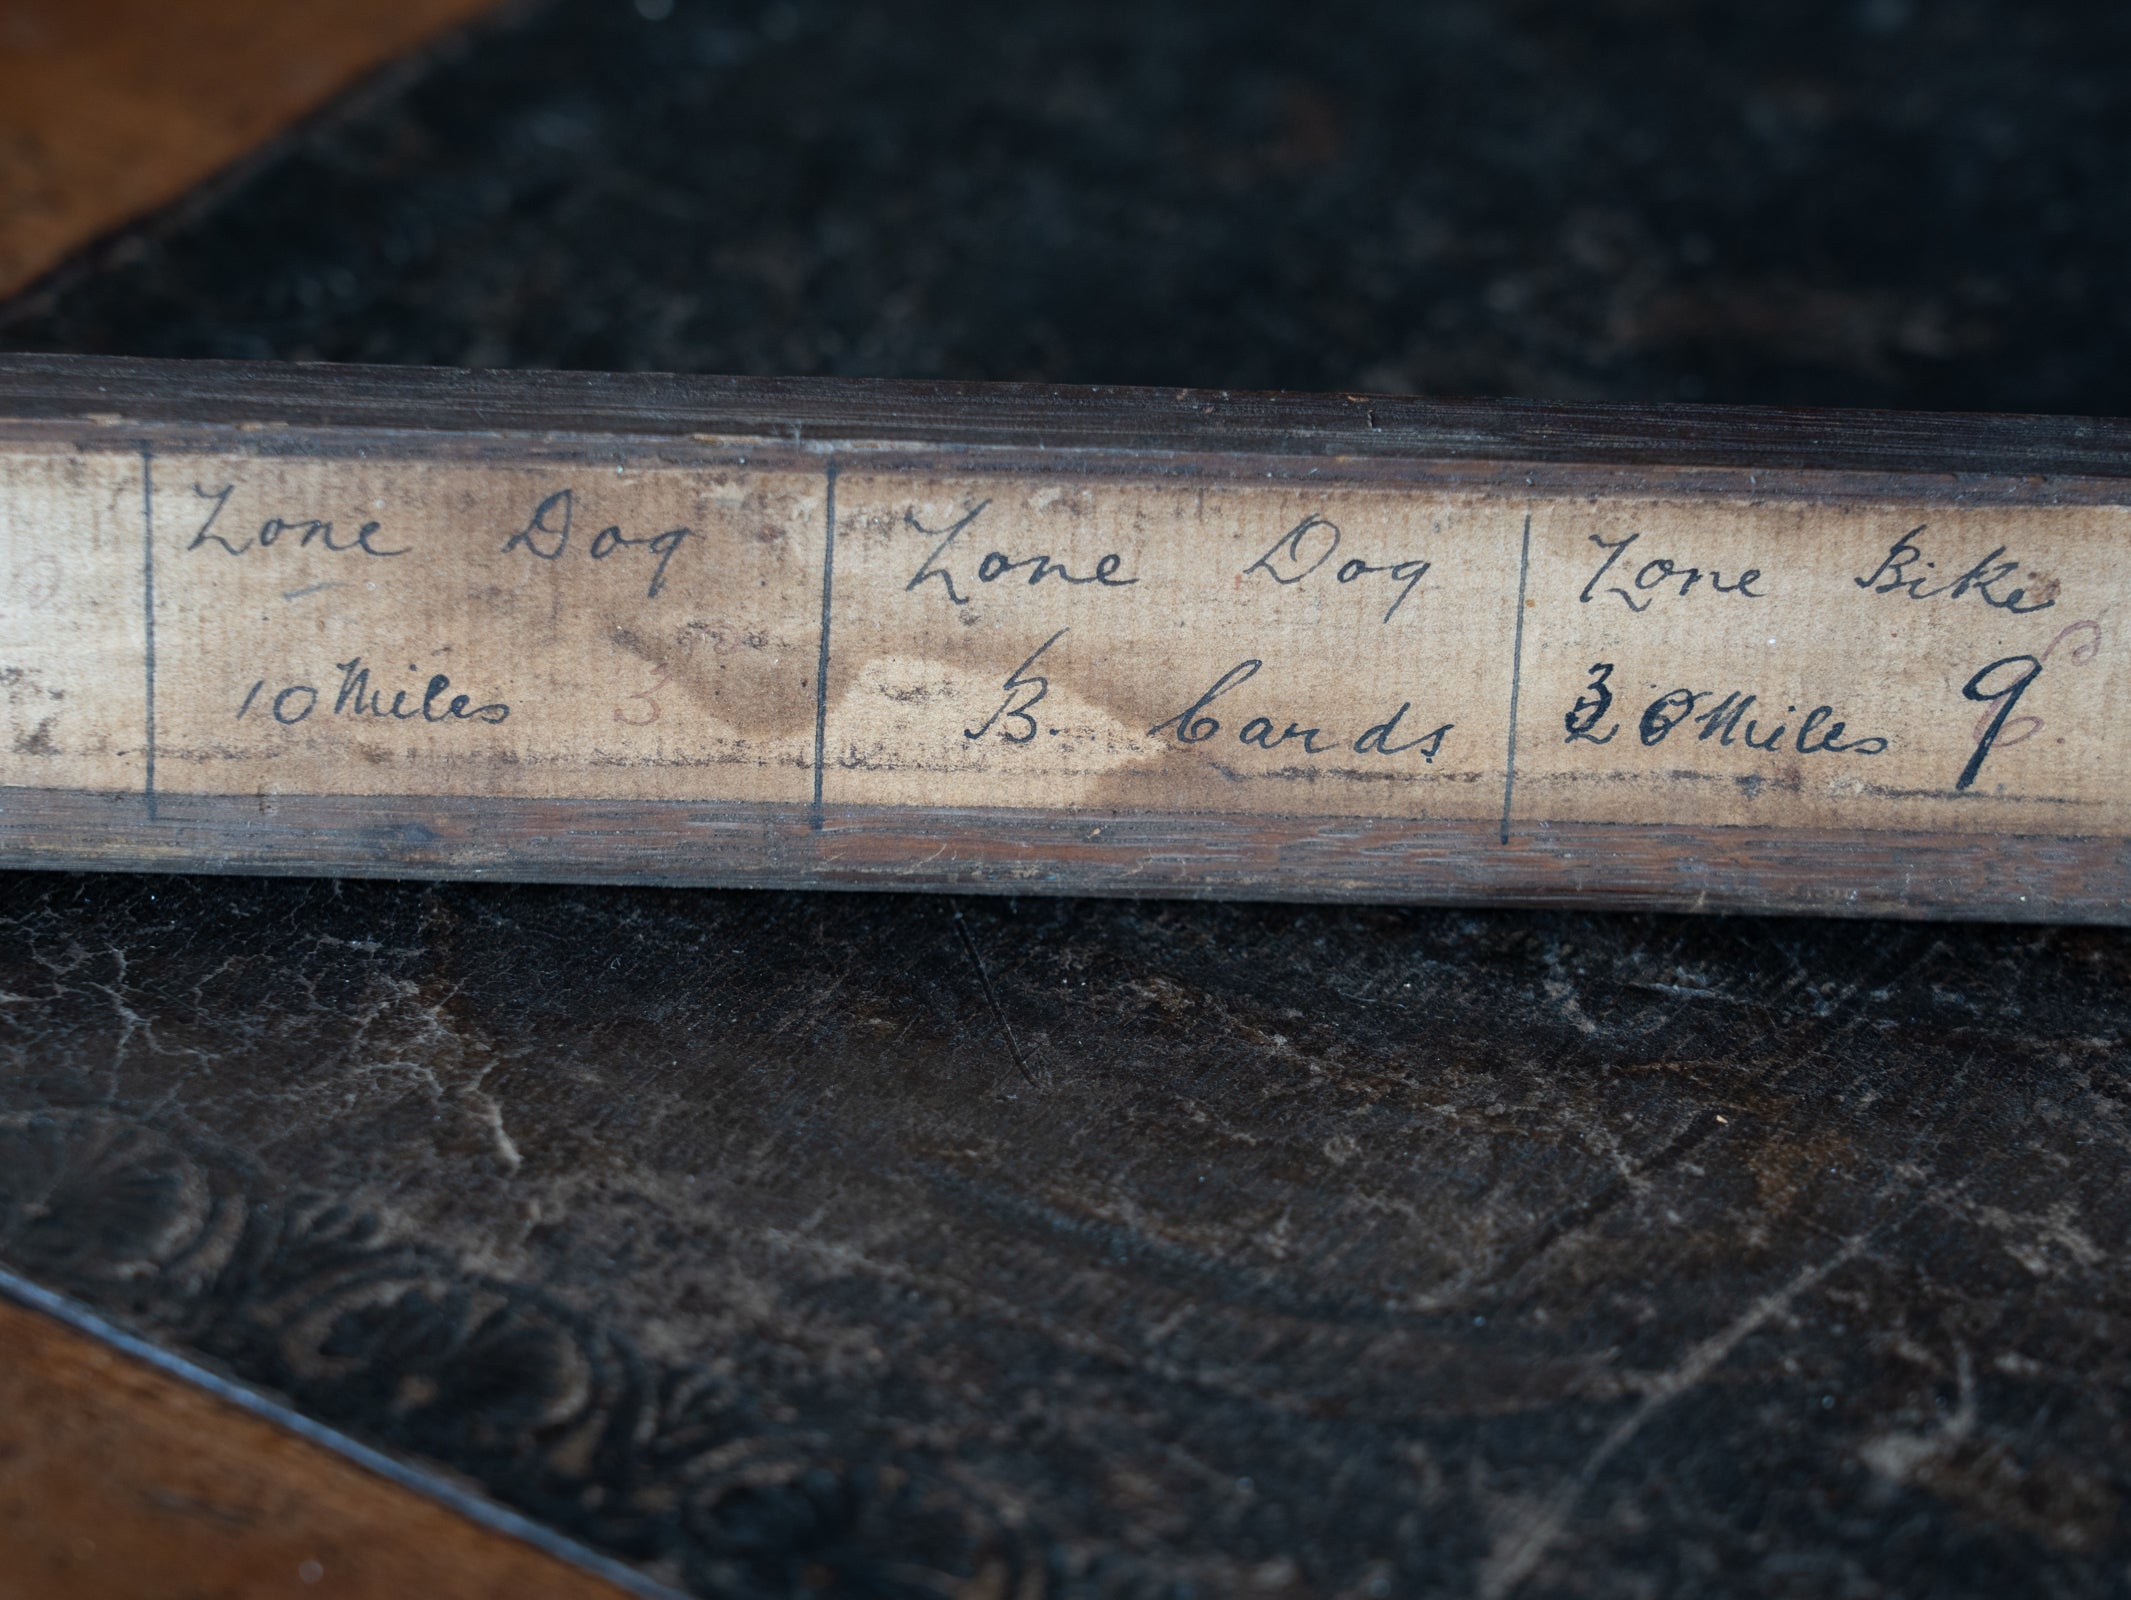 Zone Dog
10 Miles 3
Zone Dog
B. Cards
Zone Bike
Miles 9